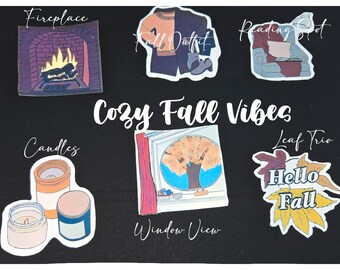 Fireplace
Fall Outfit
Reading Spot
Cozy Fall Vibes
Candles
Window View
Leaf Trio
Hello
Fall